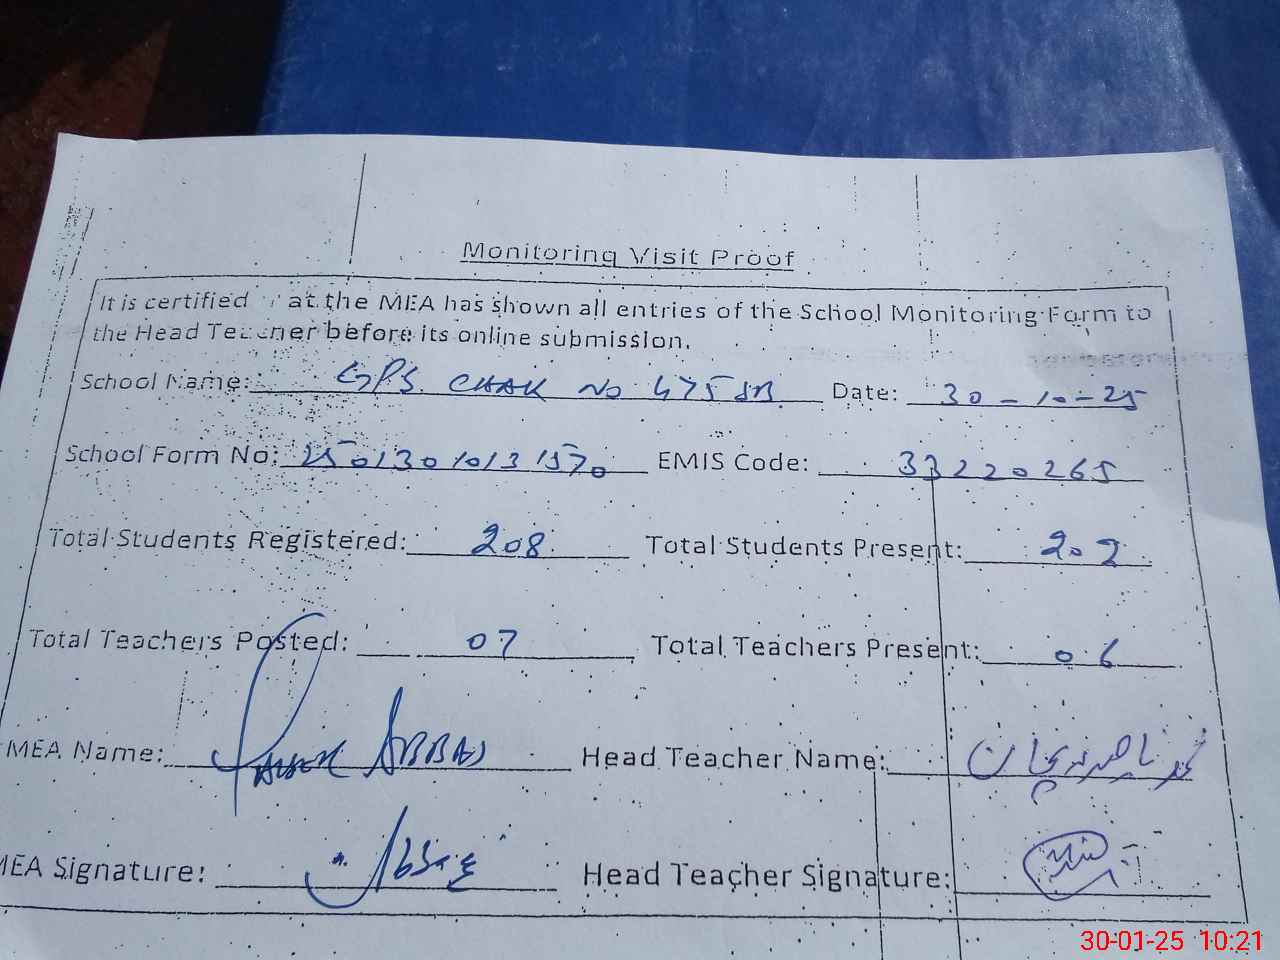 Monitoring Visit Proof
It is certified at the MEA has shown all entries of the School Monitoring Form to
the Head Teacher before its online submission.
School Name: GPS. CHAK No 475 JB. Date: 30-10-25
School Form No: 25013010131570 EMIS Code: 33220265
Total Students Registered: 208. Total Students Present: 202.
Total Teachers Posted: 07 Total Teachers Present: 06
MEA Name: ABBAS Head Teacher Name:
MEA Signature: Head Teacher Signature:
30-01-25 10:21